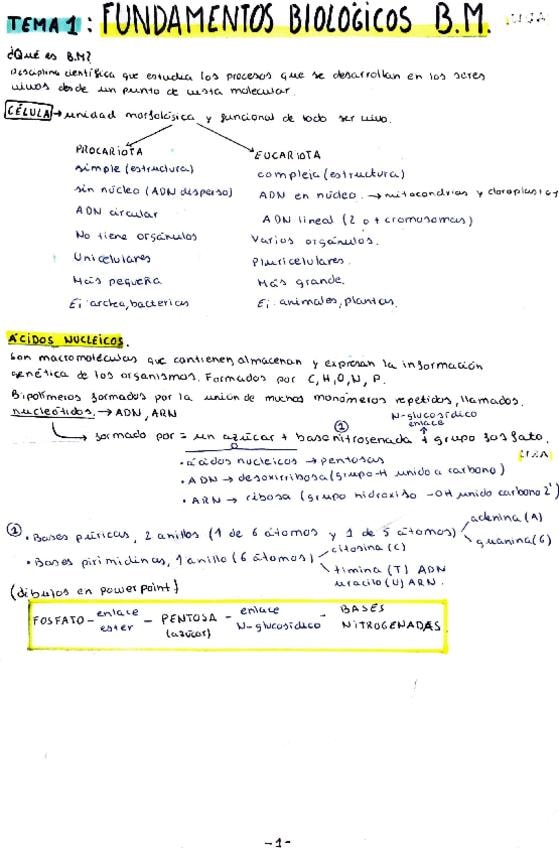 TEMA 1: FUNDAMENTOS BIOLÓGICOS B.M.
¿Qué es B.M?
Disciplina científica que estudia los procesos que se desarrollan en los seres
vivos desde un punto de vista molecular.
CÉLULA → unidad morfológica y funcional de todo ser vivo.
PROCARIOTA
EUCARIOTA
simple (estructura)
compleja (estructura)
sin núcleo (ADN disperso)
ADN en núcleo. → mitocondrias y cloroplastos
ADN circular
ADN lineal (2 o + cromosomas)
No tiene orgánulos
Varios orgánulos.
Unicelulares
Pluricelulares.
Más pequeña
Más grande.
Ej: archea, bacterias
Ej: animales, plantas.
ÁCIDOS NUCLEICOS.
Son macromoléculas que contienen, almacenan y expresan la información
genética de los organismos. Formados por C, H, O, N, P.
Bipolímeros formados por la unión de muchos monómeros repetidos, llamados
nucleótidos. → ADN, ARN
N-glucosídico
enlace
① ↑
formado por = un azúcar + base nitrogenada + grupo fosfato.
• ácidos nucleicos → pentosas
• ADN → desoxirribosa (grupo-H unido a carbono)
• ARN → ribosa (grupo hidroxilo -OH unido carbono 2')
① • Bases púricas, 2 anillos (1 de 6 átomos y 1 de 5 átomos) adenina (A)
guanina (G)
• Bases pirimidinas, 1 anillo (6 átomos) citosina (C)
timina (T) ADN
uracilo (U) ARN.
(dibujos en powerpoint)
FOSFATO - enlace ester - PENTOSA (azúcar) - enlace N-glucosídico - BASES NITROGENADAS
-1-